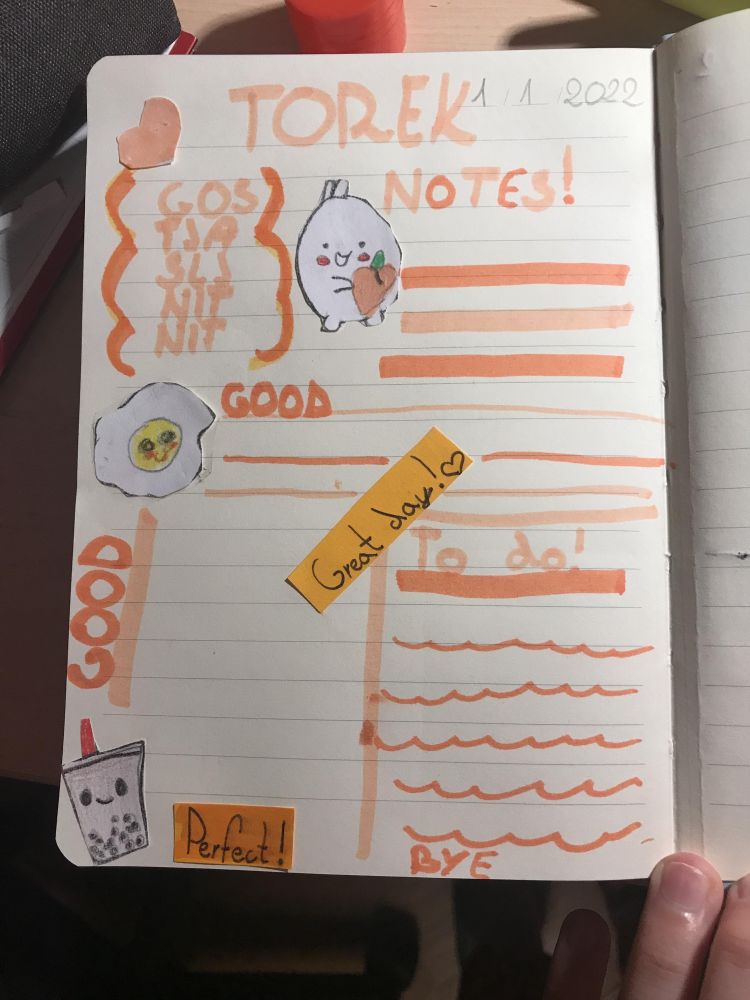 TOREK
1/1/2022
NOTES!
GOS
TJA
SLJ
NIT
NIT
GOOD
Great day!♡
To do!
GOOD
Perfect!
BYE